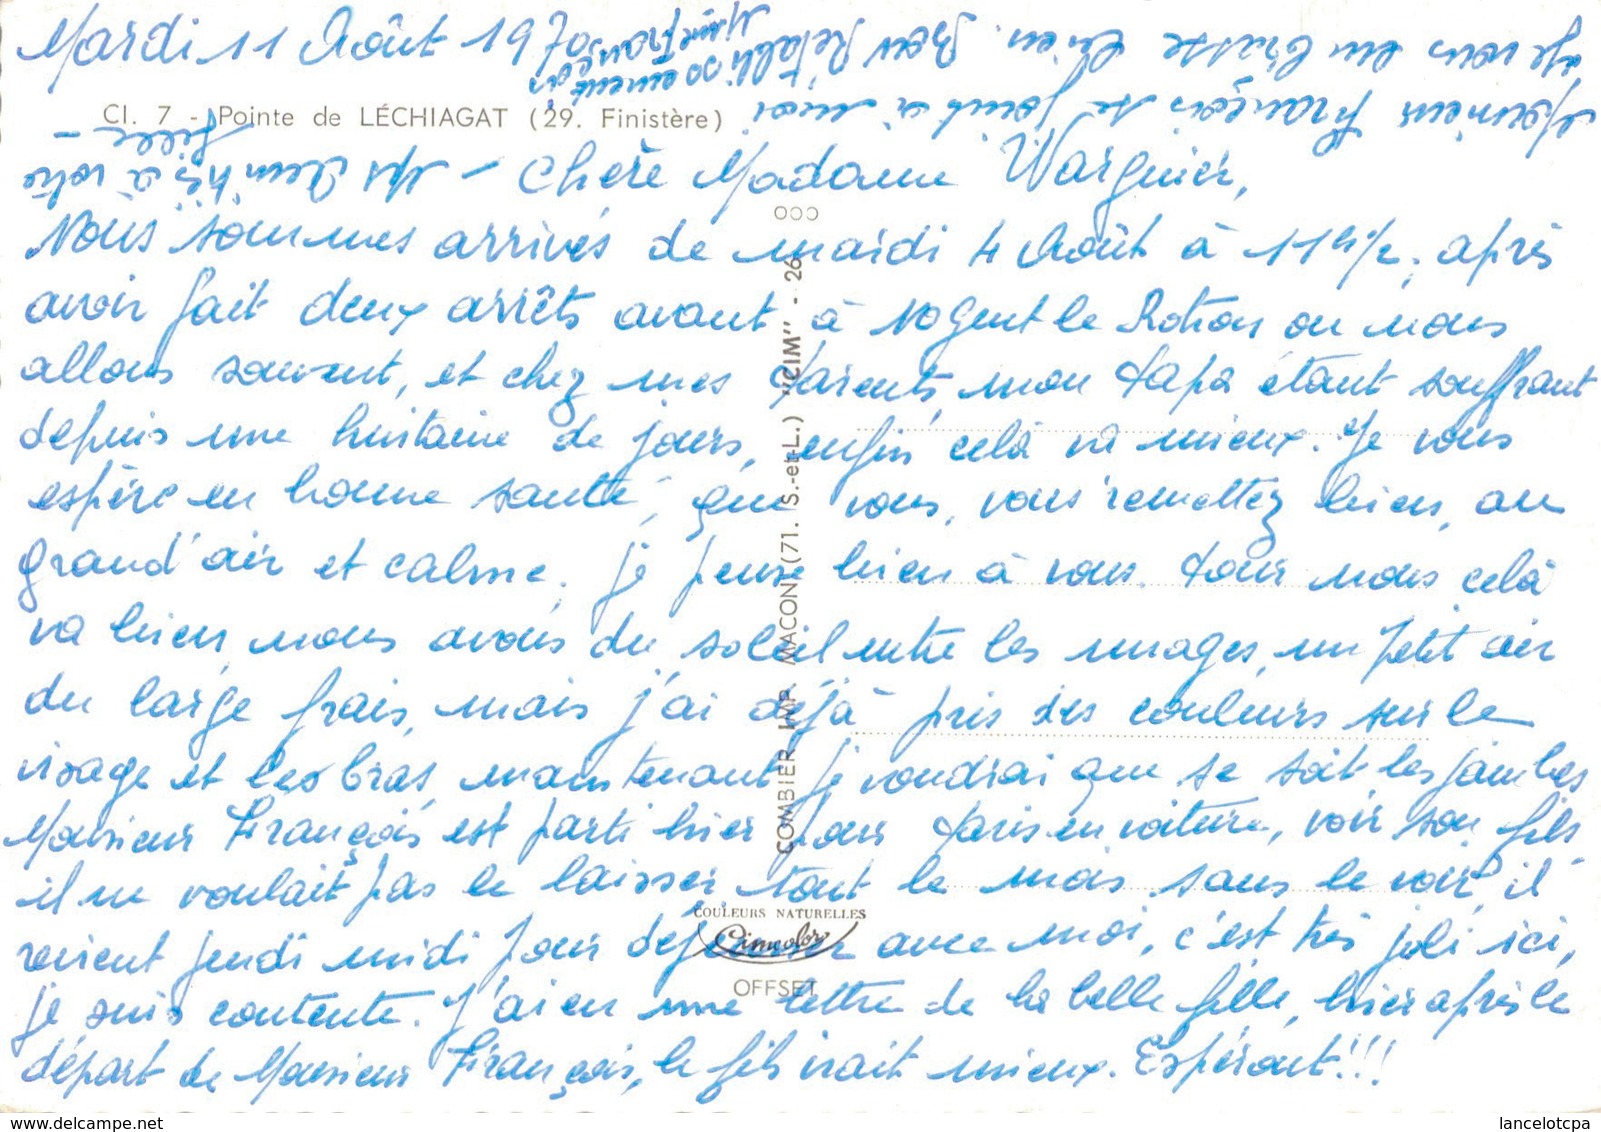 Mardi 11 Août 1970
Cl. 7 - Pointe de LÉCHIAGAT (29. Finistère)
Chère Madame Warguier,
Nous sommes arrivés de mardi 4 Août à 11h 1/2, après
avoir fait deux arrêts avant à Nogent le Rotrou ou nous
allons souvent, et chez mes Parents, mon Papa étant souffrant
depuis une huitaine de jours, enfin celà va mieux. Je vous
espère en bonne santé, que vous, vous remettez bien, au
grand'air et calme. je pense bien à vous. Pour nous celà
va bien, nous avons du soleil entre les nuages, un petit air
du large frais, mais j'ai déjà pris des couleurs sur le
visage et les bras, maintenant je voudrai que se soit les jambes
Monsieur François est parti hier pour Paris en voiture, voir son fils
il ne voulait pas le laisser tout le mois sans le voir, il
revient jeudi midi pour déjeuner avec moi, c'est très joli ici,
je suis contente. J'ai eu une lettre de la belle fille, hier après le
départ de Monsieur François, le fils irait mieux. Espéront!!!
Monsieur François se joint à moi
je vous embrasse bien. Bon Rétablissement
Mme François
Mes Amitiés à votre
fille -
COMBIER IMP. MACON (71. S.-et-L.) "CIM" - 26
COULEURS NATURELLES
Cimcolor
OFFSET
www.delcampe.net
lancelotcpa